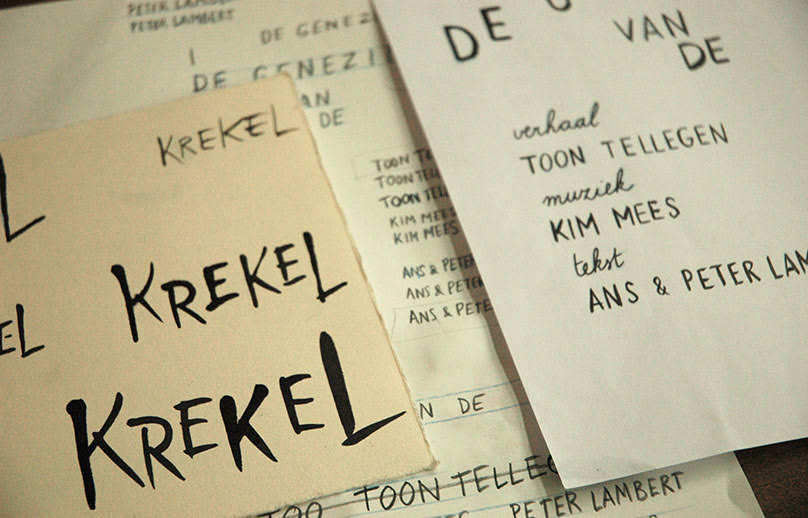 PETER LAMBERT
PETER LAMBERT
DE GENEZ
DE GENEZI
AN
DE
KREKEL
KREKEL
KREKEL
EL
TOON TE
TOON TELL
TOON TELLE
KIM MEES
KIM MEES
ANS & PETER
ANS & PETE
ANS & PETE
N DE
TOO TOON TELLEG
PETER LAMBERT
DE G
VAN
DE
verhaal
TOON TELLEGEN
muziek
KIM MEES
tekst
ANS & PETER LAM